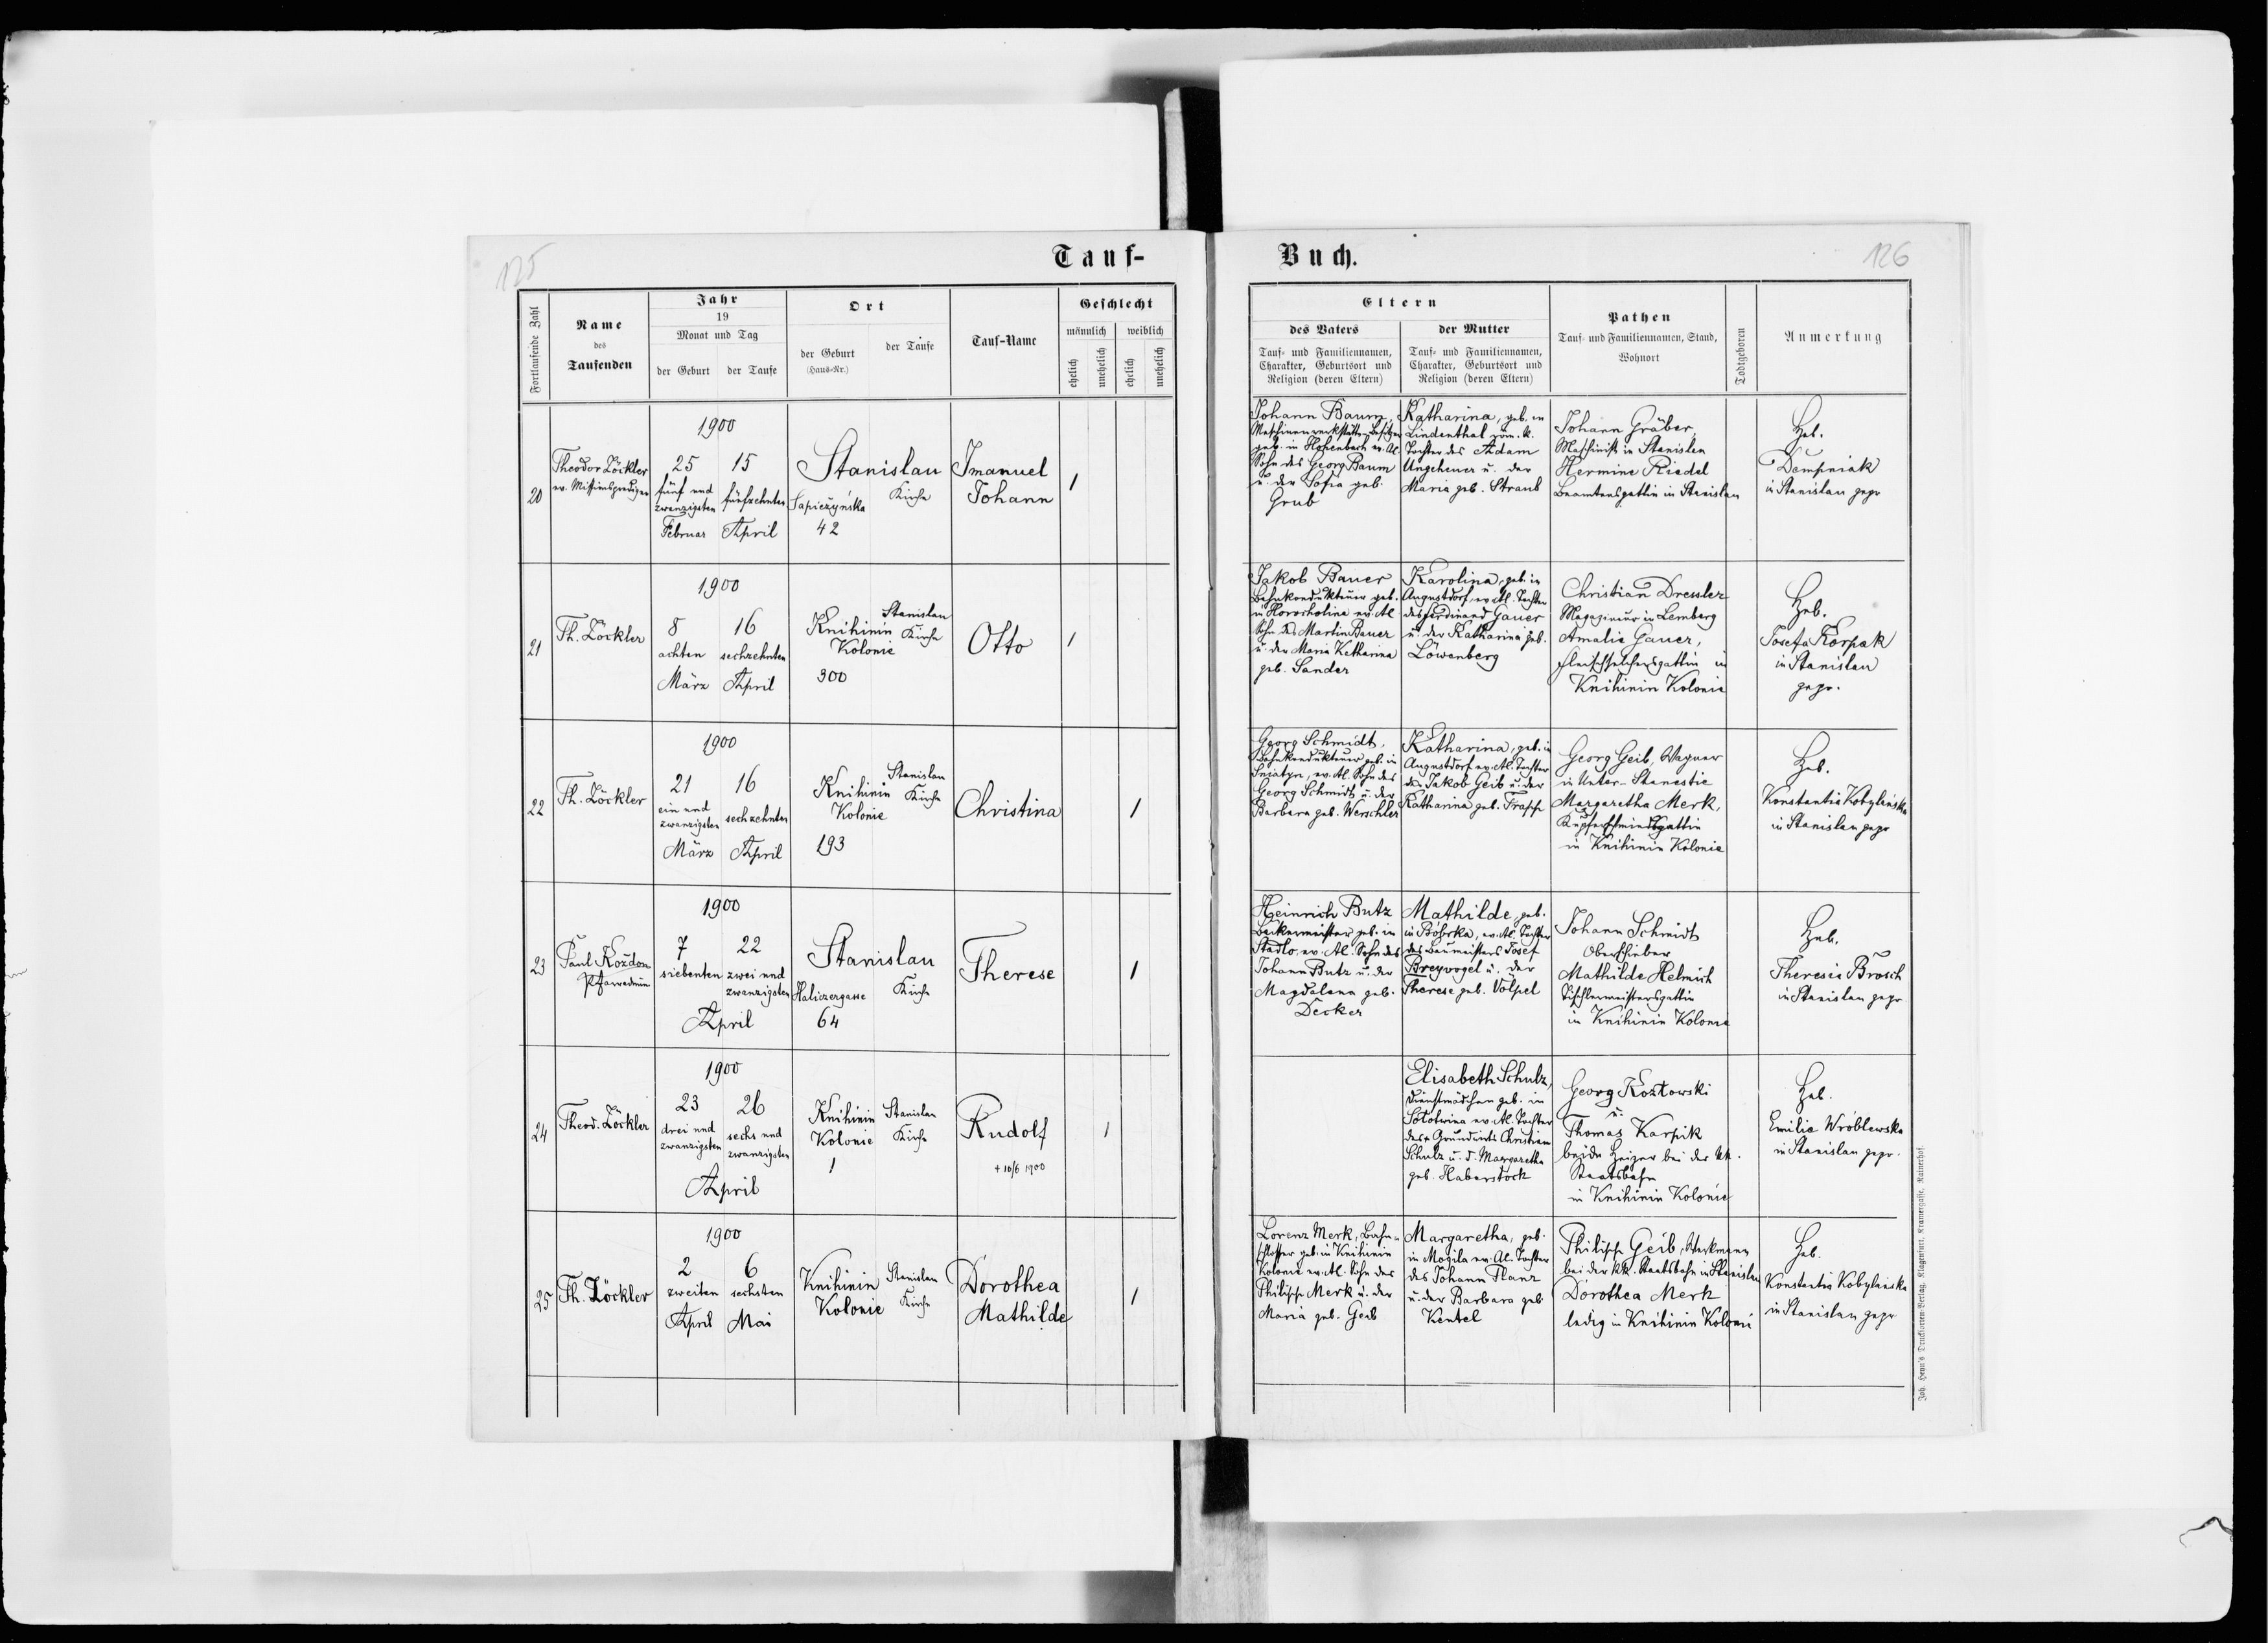 125
Tauf-
Fortlaufende Zahl
Name
des
Taufenden
Jahr
19
Monat und Tag
der Geburt
der Taufe
Ort
der Geburt
(Haus-Nr.)
der Taufe
Tauf-Name
Geschlecht
männlich
weiblich
ehelich
unehelich
ehelich
unehelich
20
Theodor Zöckler
ev. Missionsprediger
1900
25 15
fünf und
zwanzigsten
fünfzehnten
Februar April
Stanislau
Kirche
Sapieżyńska
42
Imanuel
Johann
1
21
Th. Zöckler
1900
8 16
achten sechzehnten
März April
Knihinin
Kolonie
300
Stanislau
Kirche
Otto
1
22
Th. Zöckler
1900
21 16
ein und
zwanzigsten
sechzehnten
März April
Knihinin
Kolonie
193
Stanislau
Kirche
Christina
1
23
Paul Kozdon
Pfarradmin
1900
7 22
siebenten zwei und
zwanzigsten
April
Stanislau
Haliczergasse
64
Kirche
Therese
1
24
Theod. Zöckler
1900
23 26
drei und
zwanzigsten
sechs und
zwanzigsten
April
Knihinin
Kolonie
1
Stanislau
Kirche
Rudolf
+ 10/6 1900
1
25
Th. Zöckler
1900
2 6
zweiten sechsten
April Mai
Knihinin
Kolonie
Stanislau
Kirche
Dorothea
Mathilde
1
Buch.
126
Eltern
des Vaters
Tauf- und Familiennamen,
Charakter, Geburtsort und
Religion (deren Eltern)
der Mutter
Tauf- und Familiennamen,
Charakter, Geburtsort und
Religion (deren Eltern)
Pathen
Tauf- und Familiennamen, Stand,
Wohnort
Todtgeboren
Anmerkung
Johann Baum,
Maschinenwerkstätte-Besitzer
geb. in Hohenbach ev. Al
Sohn des Georg Baum
u. der Sofia geb.
Grub
Katharina, geb. in
Lindenthal röm. k.
Tochter des Adam
Ungeheuer u. der
Maria geb. Straub
Johann Gräber,
Maschinist in Stanislau
Hermine Riedel
Beamtensgattin in Stanislau
Heb.
Dempniak
in Stanislau gepr
Jakob Bauer
Bahnkondukteur geb.
in Horocholina ev. Al
Sohn des Martin Bauer
u. der Maria Katharina
geb. Sander
Karolina, geb. in
Augustdorf, ev. Al. Tochter
des Ferdinand Gauer
u. der Katharina geb.
Löwenberg
Christian Dressler
Magazineur in Lemberg
Amalie Gauer,
Fleischselchersgattin in
Knihinin Kolonie
Heb.
Josefa Korpak
in Stanislau
gepr.
Georg Schmidt,
Bahnkondukteur geb. in
Sniatyn, ev. Al. Sohn des
Georg Schmidt u. der
Barbara geb. Werschler
Katharina, geb. in
Augustdorf ev. Al. Tochter
des Jakob Geib u. der
Katharina geb. Trapp
Georg Geib, Wagner
in Unter-Stanestie
Margaretha Merk,
Kupferschmiedsgattin
in Knihinin Kolonie
Heb.
Konstantia Kobylańska
in Stanislau gepr
Heinrich Butz
Bäckermeister geb. in
Stadlo, ev. Al. Sohn des
Johann Butz u. der
Magdalena geb.
Decker
Mathilde, geb.
in Bóbrka, ev. Al. Tochter
des Baumeisters Josef
Breyvogel u. der
Therese geb. Völpel
Johann Schmidt
Oberschieber
Mathilde Helmich
Tischlermeistersgattin
in Knihinin Kolonie
Heb.
Theresia Brosch
in Stanislau gepr
Elisabeth Schulz,
Dienstmädchen geb. in
Sołotwina ev. Al. Tochter
des + Grundwirts Christian
Schulz u. d. Margaretha
geb. Haberstock
Georg Kozłowski
u.
Thomas Karpik
beide Heizer bei der kk.
Staatsbahn
in Knihinin Kolonie
Heb.
Emilia Wróblewska
in Stanislau gepr.
Lorenz Merk, Bahn-
schlosser geb. in Knihinin
Kolonie ev. Al. Sohn des
Philipp Merk u. der
Maria geb. Geib
Margaretha, geb.
in Mogila ev. Al. Tochter
des Johann Manz
u. der Barbara geb.
Kentel
Philipp Geib, Werkmann
bei der kk. Staatsbahn in Stanislau
Dorothea Merk
ledig in Knihinin Kolonie
Heb.
Konstantia Kobylańska
in Stanislau gepr
Joh. Heyn's Drucksorten-Verlag, Klagenfurt, Kramergasse, Rainerhof.